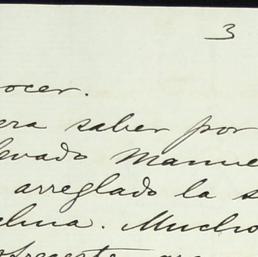 3
ocer.
era saber por
levado Manue
arreglado la s
elma. Mucho